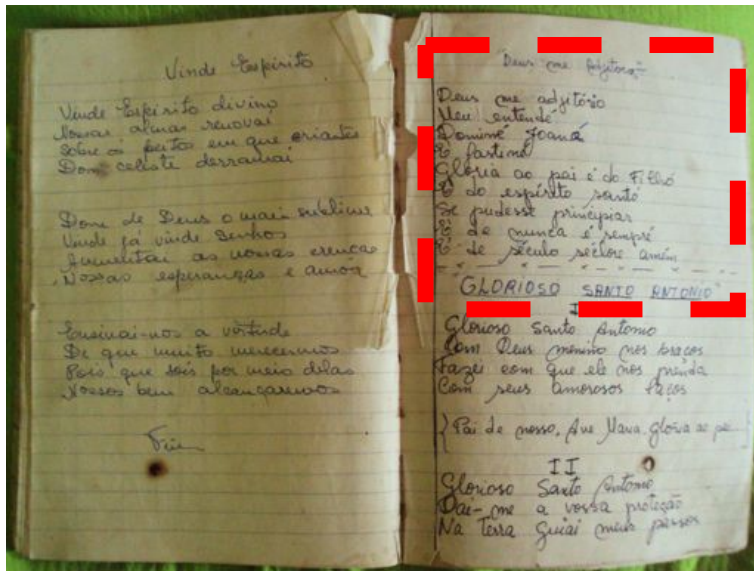 Vinde Espírito
Vinde Espírito divino
Nossas almas renovai
Sobre os peitos em que criastes
Dom celeste derramai
Dom de Deus o mais sublime
Vinde já vinde Senhor
Aumentai as nossas crenças
Nossas esperanças e amor
Ensinai-nos a virtude
De que muito merecermos
Pois que sois por meio delas
Nossos bem alcançaremos
Fim
Deus me Adjitorio
Deus me adjitório
Meu entendé
Dominé Joaná
E fastiné
Gloria ao pai é do Filhó
E do espírito santó
Se pudesse principiar
E de nunca é sempré
E de século séclore amém
"GLORIOSO SANTO ANTONIO"
I
Glorioso Santo Antonio
Com Deus menino nos braços
Fazei com que ele nos prenda
Com seus amorosos laços
Pai de nosso, Ave Maria, gloria ao pe
II
Glorioso Santo Antonio
Dai-me a vossa proteção
Na terra guiai meus passos